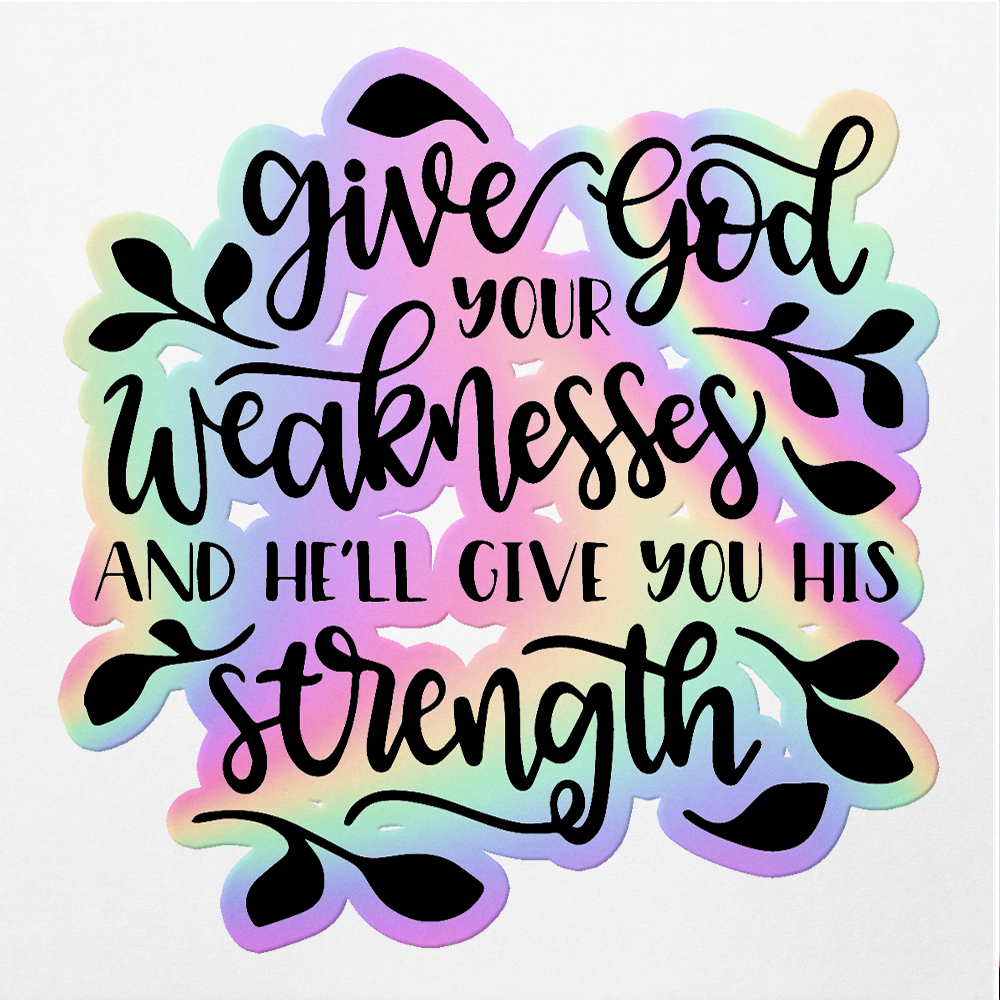 give God
YOUR
weaknesses
AND HE'LL GIVE YOU HIS
strength